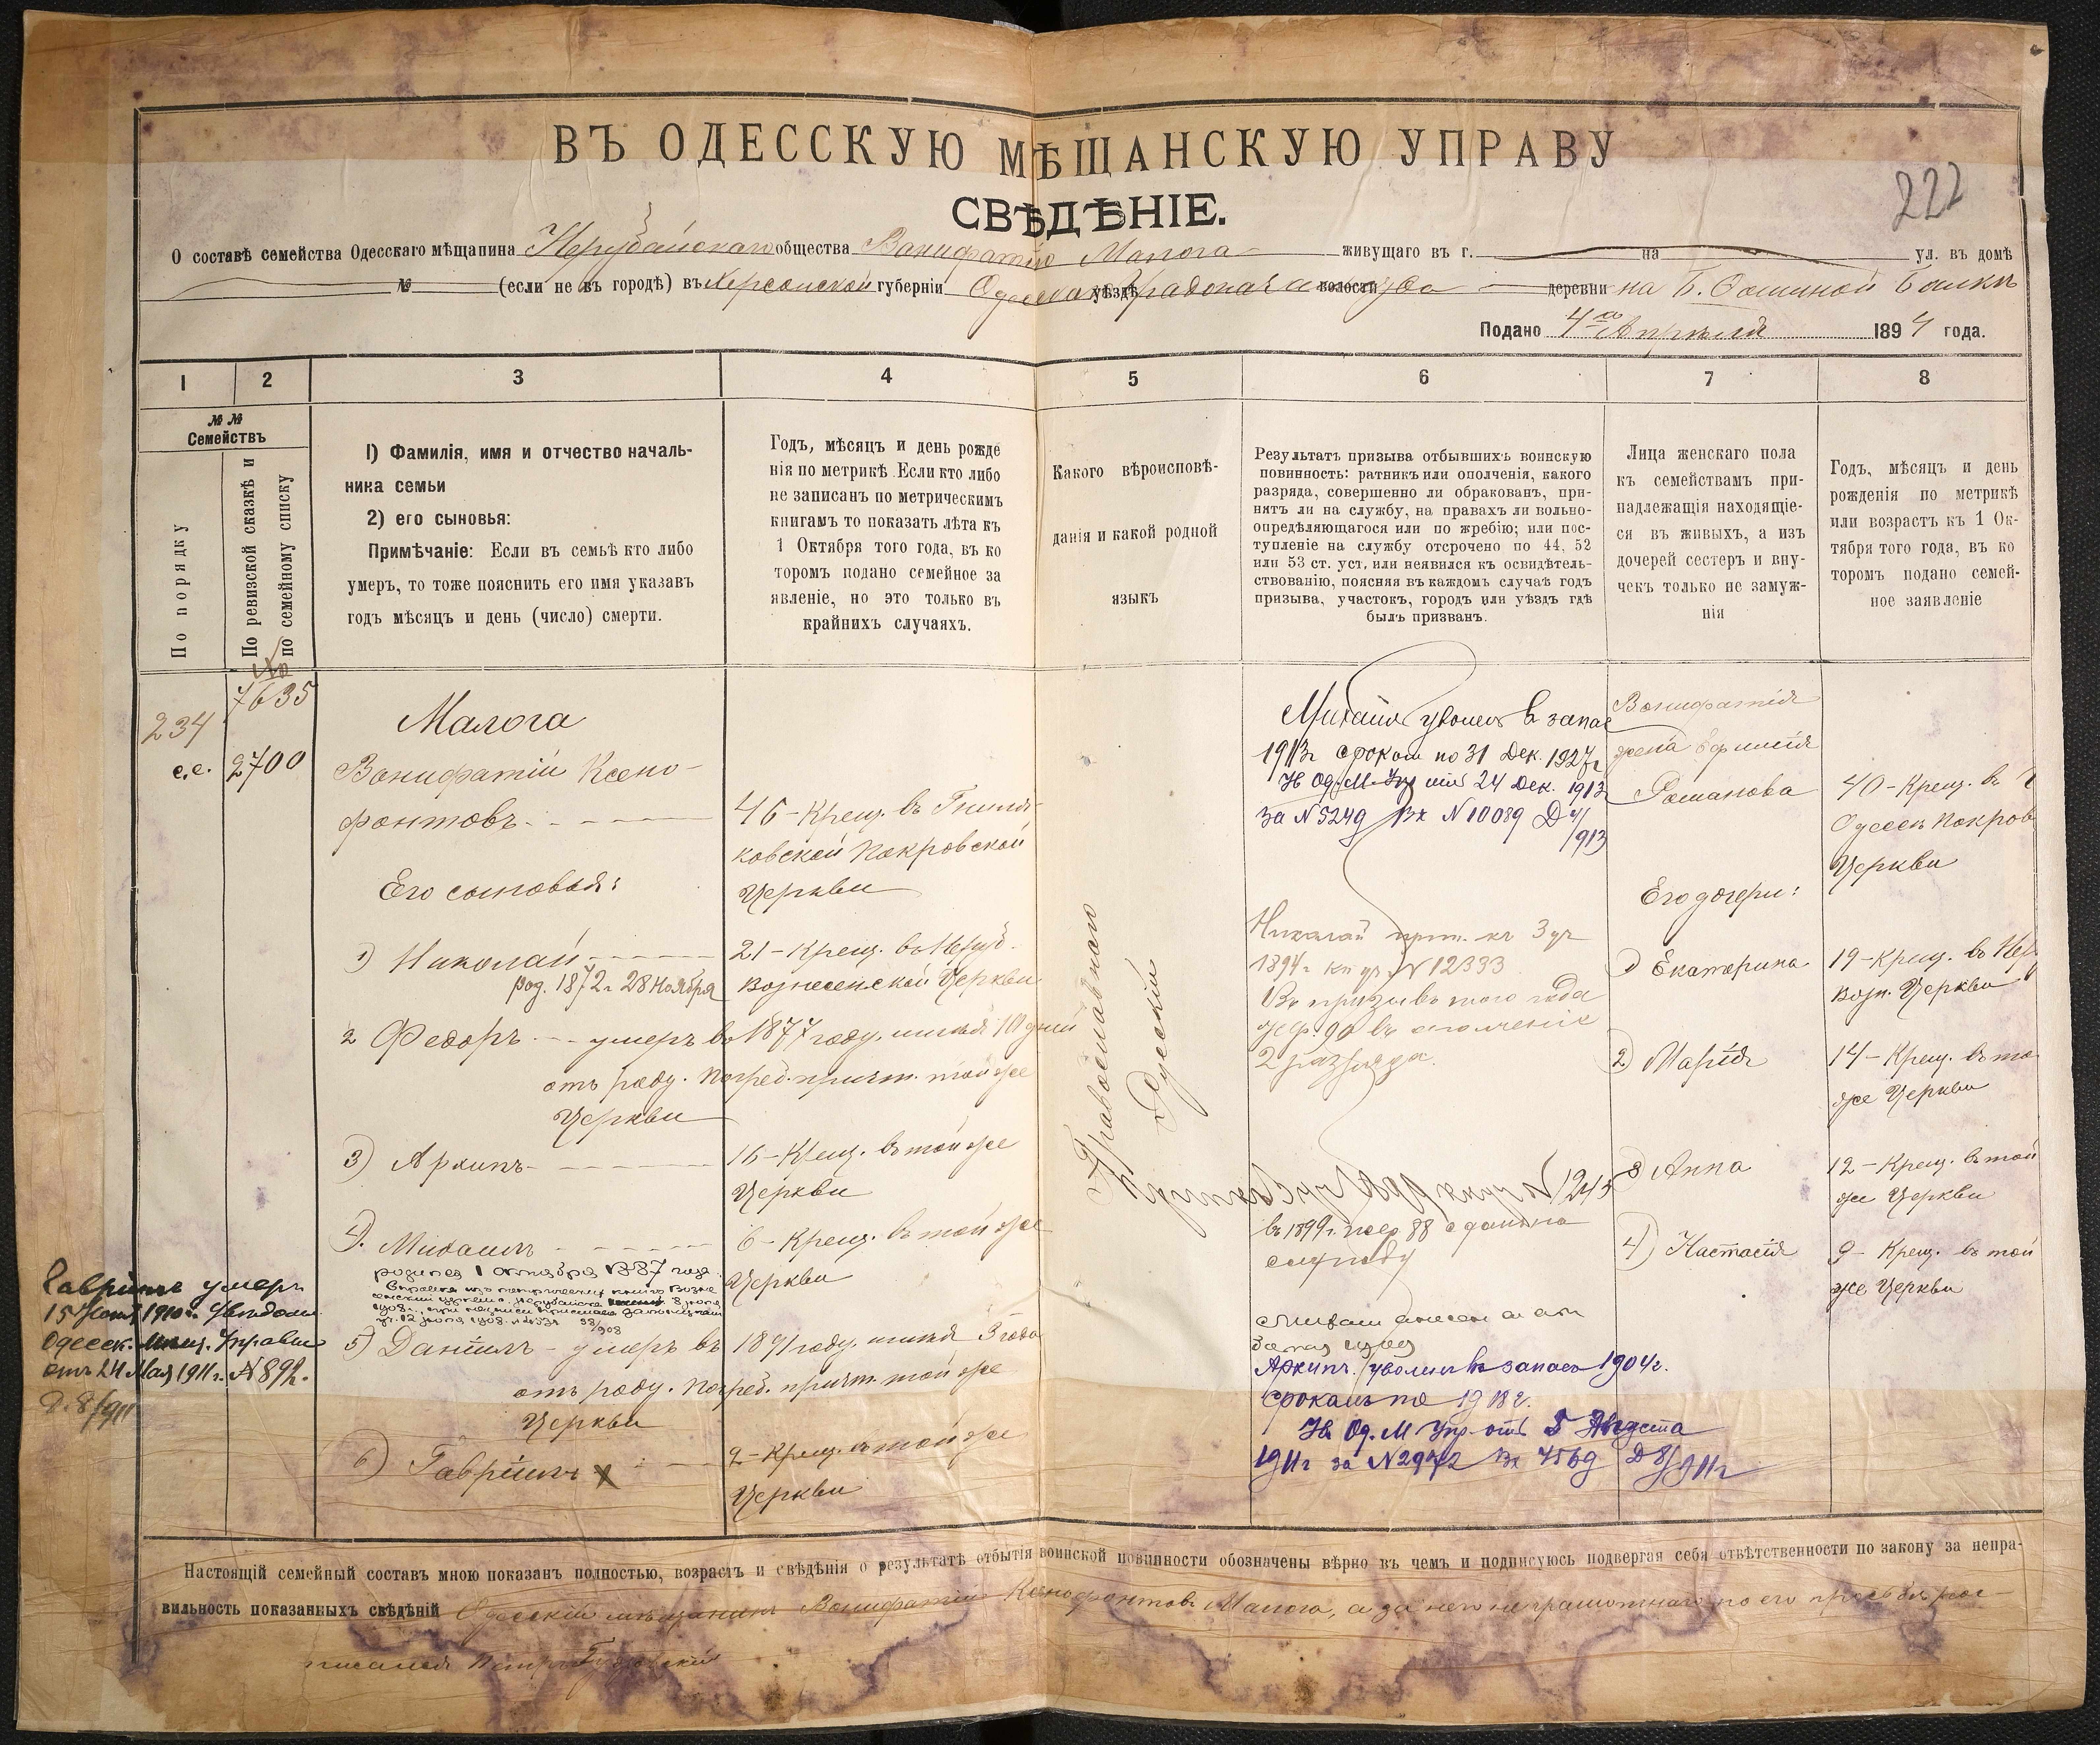 ВЪ ОДЕССКУЮ МѢЩАНСКУЮ УПРАВУ
СВѢДѢНІЕ.
222
О составѣ семейства Одесскаго мѣщанина Нерубайскаго общества Вонифатія Малога живущаго въ г. на ул. въ домѣ
№ (если не въ городѣ) въ Херсонской губерніи уѣздѣ волости деревни на Балкѣ
Подано 4го Апрѣля 1894 года.
1 2 3 4 5 6 7 8
№ № Семействъ
По порядку
По ревизской сказкѣ и по семейному списку
1) Фамилія, имя и отчество началь-
ника семьи
2) его сыновья:
Примѣчаніе: Если въ семьѣ кто либо
умеръ, то тоже пояснить его имя указавъ
годъ мѣсяцъ и день (число) смерти.
Годъ, мѣсяцъ и день рожде
нія по метрикѣ. Если кто либо
не записанъ по метрическимъ
книгамъ то показать лѣта къ
1 Октября того года, въ ко
торомъ подано семейное за
явленіе, но это только въ
крайнихъ случаяхъ.
Какого вѣроисповѣ-
данія и какой родной
языкъ
Результатъ призыва отбывшихъ воинскую
повинность: ратникъ или ополченія, какого
разряда, совершенно ли обракованъ, при-
нятъ ли на службу, на правахъ ли вольно-
опредѣляющагося или по жребію; или пос-
тупленіе на службу отсрочено по 44, 52
или 53 ст. уст. или неявился къ освидѣтель-
ствованію, поясняя въ каждомъ случаѣ годъ
призыва, участокъ, городъ или уѣздъ гдѣ
былъ призванъ.
Лица женскаго пола
къ семействамъ при-
надлежащія находящіе-
ся въ живыхъ, а изъ
дочерей сестеръ и вну-
чекъ только не замуж-
нія
Годъ, мѣсяцъ и день
рожденія по метрикѣ
или возрастъ къ 1 Ок-
тября того года, въ ко
торомъ подано семей-
ное заявленіе
234
7635
с.с. 2700
Малога
Вонифатій Ксено-
фонтовъ
46 - Крещ. въ Гниля-
ковской Покровской
Церкви
Его сыновья:
1) Николай
род. 1872 г. 28 Ноября
21 - Крещ. въ Неруб.
Вознесенской Церкви
2 Федоръ - умеръ въ 1877 году, имѣя 10 дней
отъ роду. Погреб. причт. той же
Церкви
3) Архипъ
16 - Крещ. въ той же
Церкви
4). Михаилъ
родился 1 октября 1887 года
6 - Крещ. въ той же
Церкви
5) Даніилъ - умеръ въ 1891 году, имѣя 3 года
отъ роду. Погреб. причт. той же
Церкви
6) Гавріилъ x
2 - Крещ. въ той же
Церкви
Гавріилъ умеръ
Одесск. Мѣщ. Управы
отъ 24 Мая 1911 г. № 892.
Д. 8/911
Православнаго
Русскій
Михаилъ уволен в запас
1913г сроком по 31 Дек. 1927г
Н Од. М. Упр от 24 Дек. 1913
за N 5249 Вх N 10089 Д 4/913
Николай прип. къ 3 уч
1894 г. N 12333
Въ призывъ того года
жер. 90 въ ополченіе
2 разряда.
въ 1899 г. жер 88
службу
Архипъ уволенъ въ запасъ 1904 г.
срокомъ по 1918 г.
Н Од. М Упр от 5 Августа
1911г за N 2972 Вх 4569 Д 8/911г
Вонифатія
жена Ефимія
Романова
40 - Крещ. въ г
Одессѣ Покров
Церкви
Его дочери:
1) Екатерина
19 - Крещ. въ Нер
Возн. Церкви
2) Марія
14 - Крещ. въ то
же Церкви
3 Анна
12 - Крещ. въ той
же Церкви
4) Настасія
9 - Крещ. въ той
же Церкви
Настоящій семейный составъ мною показанъ полностью, возрастъ и свѣдѣнія о результатѣ отбытія воинской повинности обозначены вѣрно въ чемъ и подписуюсь подвергая себя отвѣтственности по закону за непра-
вильность показанныхъ свѣдѣній Одесскій мѣщанинъ Вонифатій Ксенофонтовъ Малога, а за него неграмотнаго по его просьбѣ рос-
писался Петръ